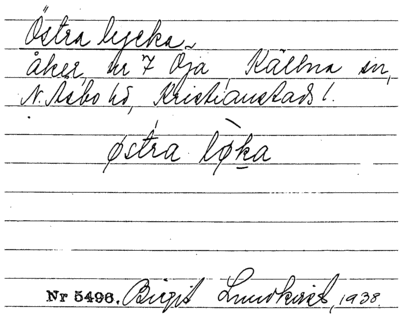 Östra lycka
åker, nr 7 Öja Källna sn,
N. Åsbo hd, Kristianstads l.
østra lø̀ka
Nr 5496. Birgit Lundkvist, 1938.